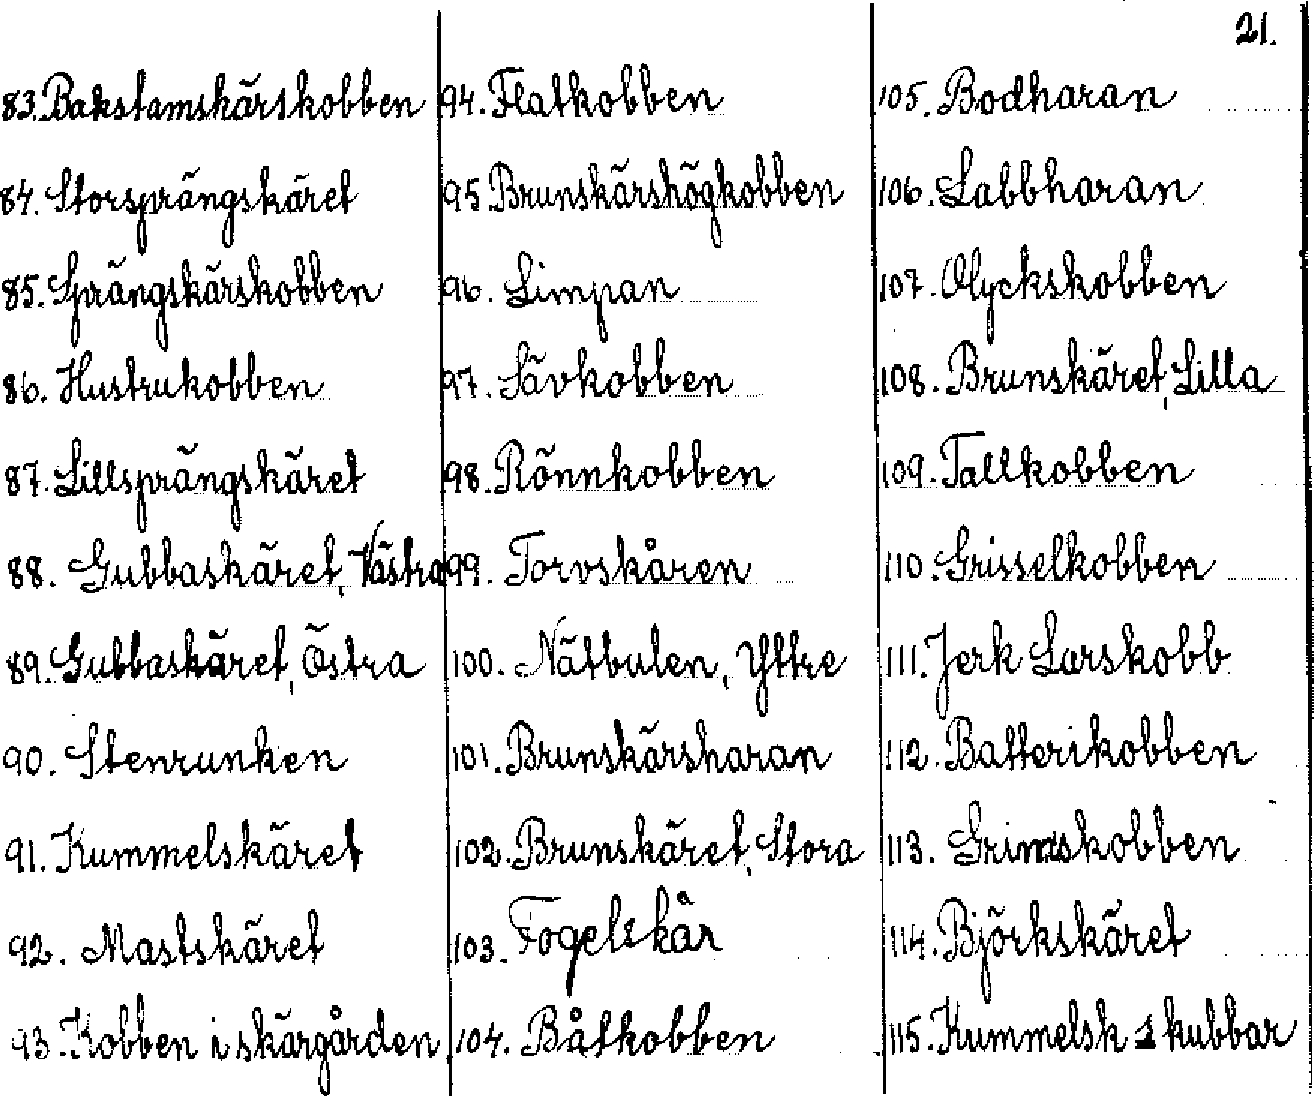 21.
83. Bakstamskärskobben
84. Storsprängskäret
85. Sprängskärskobben
86. Hustrukobben
87. Lillsprängskäret
88. Gubbaskäret, Västra
89. Gubbaskäret, Östra
90. Stenrunken
91. Kummelskäret
92. Mastskäret
93. Kobben i skärgården
94. Flatkobben
95. Brunskärshögkobben
96. Limpan
97. Sävkobben
98. Rönnkobben
99. Torvskåren
100. Nätbulen, Yttre
101. Brunskärsharan
102. Brunskäret, Stora
103. Fogelskär
104. Båtkobben
105. Bodharan
106. Labbharan
107. Olyckskobben
108. Brunskäret, Lilla
109. Tallkobben
110. Grisselkobben
111. Jerk Larskobb
112. Batterikobben
113. Grimskobben
114. Björkskäret
115. Kummelsk kubbar